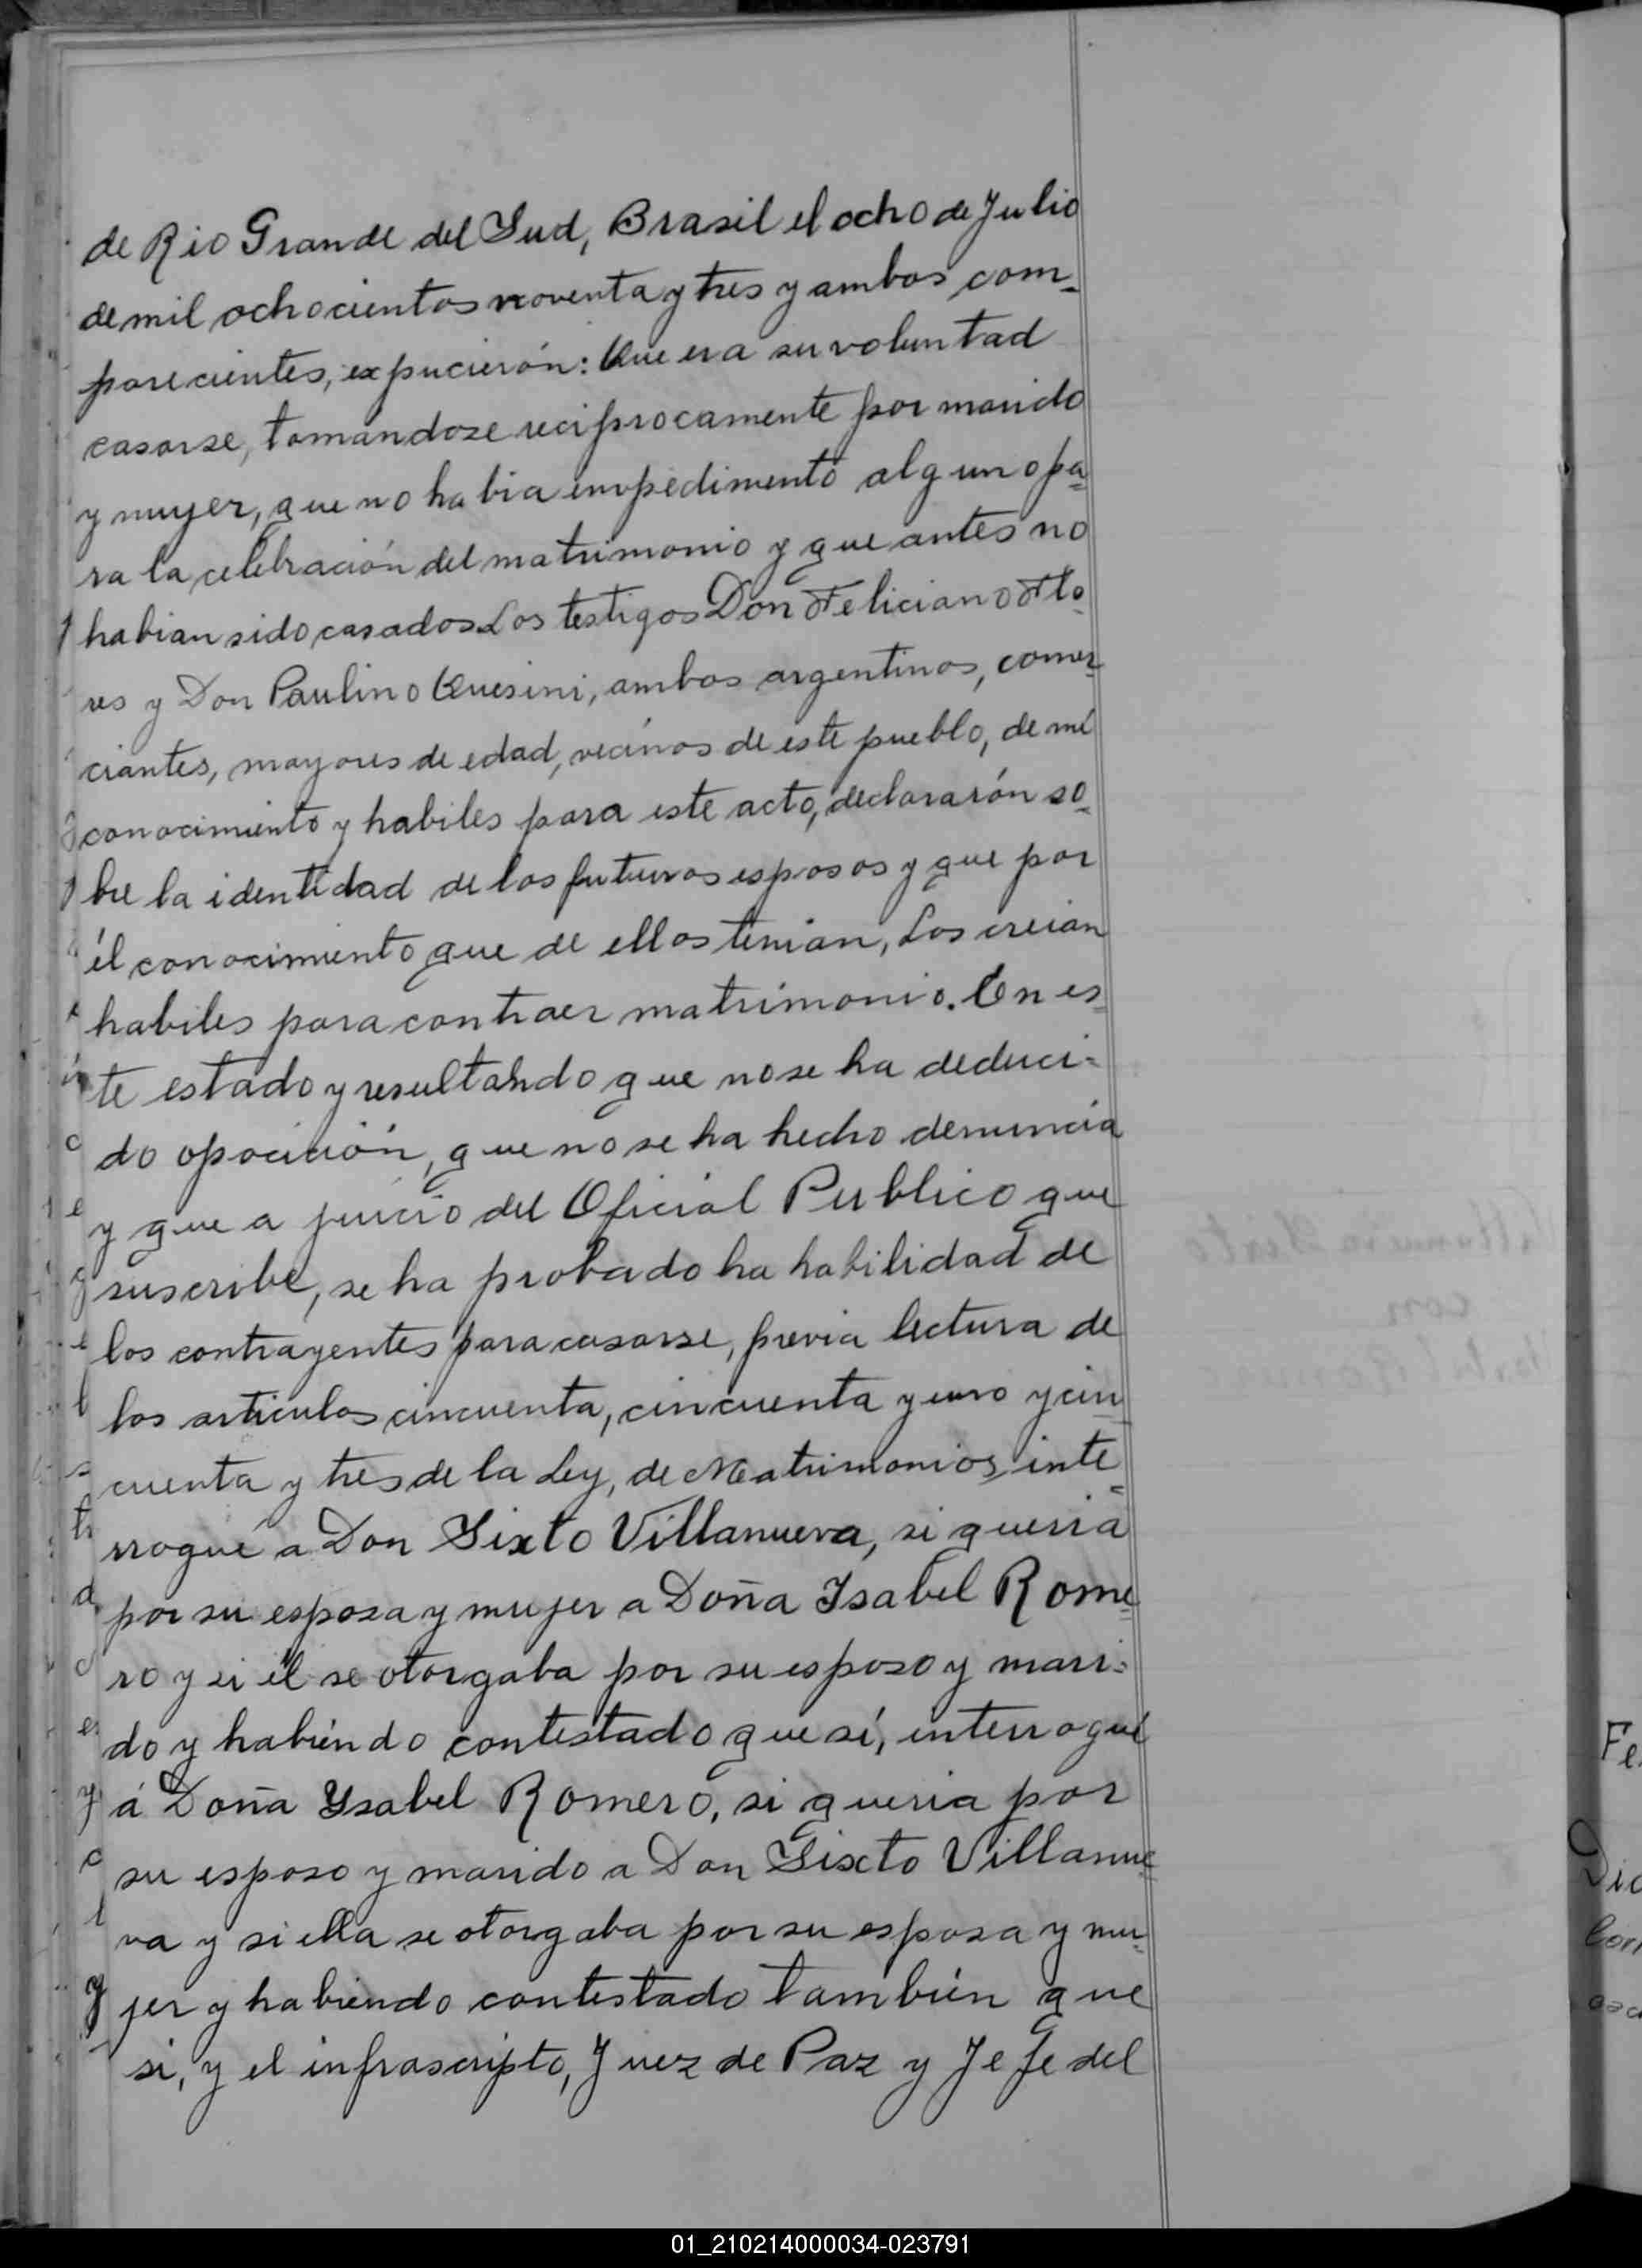 de Rio Grande del Sud, Brasil el ocho de Julio
de mil ochocientos noventa y tres y ambos com-
parecientes, expucierón: Que era su voluntad
casarse, tomandose reciprocamente por marido
y muyer, que no habia impedimento alguno pa-
ra la celebración del matrimonio y que antes no
habian sido casados Los testigos Don Feliciano Flo-
res y Don Paulino Quesini, ambos argentinos, comer-
ciantes, mayores de edad, vecinos de este pueblo, de mi
conocimiento y habiles para este acto, declararón so-
bre la identidad de los futuros esposos y que por
él conocimiento que de ellos tenian, Los creian
habiles para contraer matrimonio. En es-
te estado y resultando que no se ha deduci=
do oposición, que no se ha hecho denuncia
y que a juicio del Oficial Publico que
suscribe, se ha probado ha habilidad de
los contrayentes para casarse, previa lectura de
los articulos cincuenta, cincuenta y uno y cin
cuenta y tres de la Ley, de Matrimonios, inte=
rrogué a Don Sixto Villanueva, si queria
por su esposa y mujer a Doña Isabel Rome-
ro y si él se otorgaba por su esposo y mari=
do y habiendo contestado que sí, interrogué
á Doña Ysabel Romero, si queria por
su esposo y marido a Don Sixto Villanue-
va y si ella se otorgaba por su esposa y mu=
jer y habiendo contestado también que
si, y el infrascripto, Juez de Paz y Jefe del
Fe
Dic
01_210214000034-023791